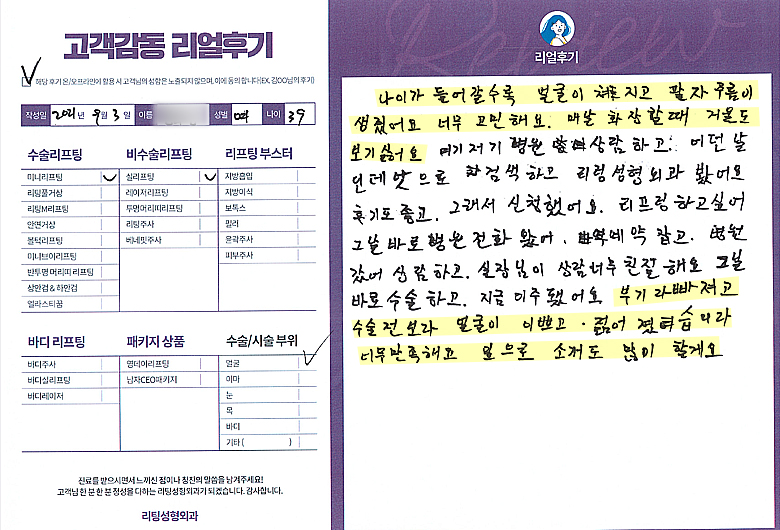 고객감동 리얼후기
해당 후기 온/오프라인에 활용 시 고객님의 성함은 노출되지 않으며, 이에 동의합니다(EX. 김OO님의 후기)
작성일 2021년 9월 3일 이름 성별 여 나이 39
수술리프팅
미니리프팅
리팅풀거상
리팅M리프팅
안면거상
볼턱리프팅
미니브이리프팅
반투명 머리띠 리프팅
상안검 & 하안검
엘라스티꿈
비수술리프팅
실리프팅
레이저리프팅
투명머리띠리프팅
리팅주사
베네핏주사
리프팅 부스터
지방흡입
지방이식
보톡스
필러
윤곽주사
피부주사
바디 리프팅
바디주사
바디실리프팅
바디레이저
패키지 상품
영데이리프팅
남자CEO패키지
수술/시술 부위
얼굴
이마
눈
목
바디
기타 ( )
진료를 받으시면서 느끼신 점이나 칭찬의 말씀을 남겨주세요!
고객님 한 분 한 분 정성을 다하는 리팅성형외과가 되겠습니다. 감사합니다.
리팅성형외과
Review
리얼후기
나이가 들어갈수록 얼굴이 쳐지고 팔자 주름이
생겼어요 너무 고민해요. 매날 화상할때 거울도
보기싫어요 여기저기 병원 상람하고. 어떤 날
인데 으로 검색하고 리팅성형외과 봤어요
후기도 좋고. 그래서 신청했어요. 리프링하고싶어
그날 바로 병원 전화 왔어. 예약 잡고. 병원
갔어 상람하고. 실장님이 상람너무 친절해요 그날
바로 수술하고. 지금 이주 됐어요 부기 라빠져고
수술전보라 얼굴이 이쁘고. 젊어 졌습니라
너무만족해고 앞으로 소개도 많이 할게요